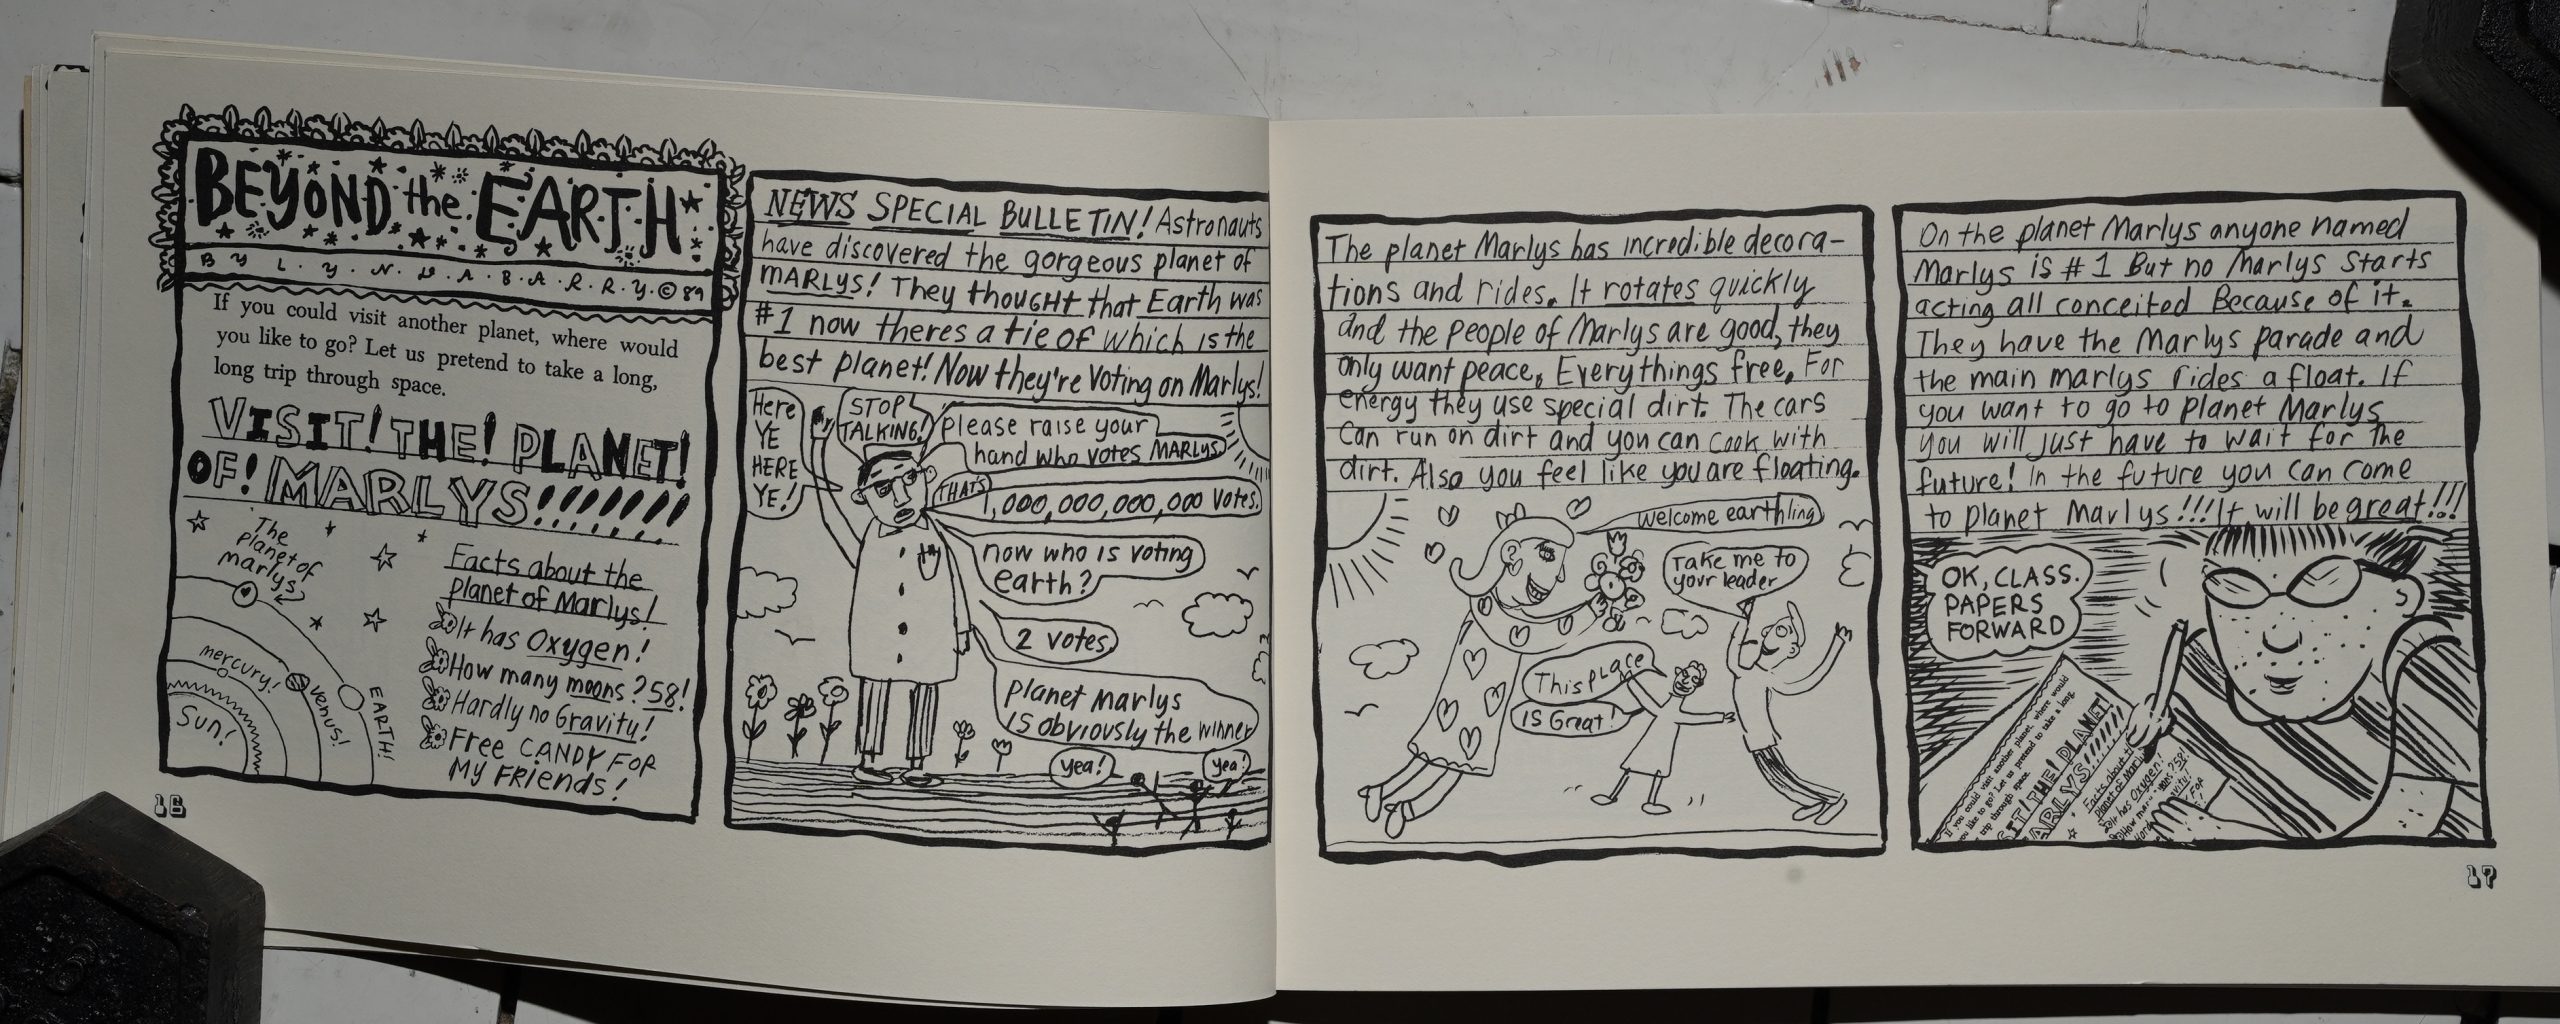 BEYOND the EARTH
BY LYNDA BARRY © 89
If you could visit another planet, where would
you like to go? Let us pretend to take a long,
long trip through space.
VISIT! THE! PLANET!
OF! MARLYS!!!!!!!!
The
planet of
marlys
mercury!
Venus!
EARTH!
Sun!
Facts about the
planet of Marlys!
It has Oxygen!
How many moons? 58!
Hardly no Gravity!
Free CANDY FOR
MY FRIENDS!
16
NEWS SPECIAL BULLETIN! Astronauts
have discovered the gorgeous planet of
MARLYS! They thought that Earth was
#1 now theres a tie of which is the
best planet! Now they're Voting on Marlys!
Here
YE
HERE
YE!
STOP
TALKING!
please raise your
hand who votes MARLYS
THAT'S
1,000,000,000,000 votes.
now who is voting
earth?
2 votes
planet marlys
is obviously the winner
yea!
yea!
The planet Marlys has incredible decora-
tions and rides. It rotates quickly
and the people of Marlys are good, they
only want peace. Everythings free. For
energy they use special dirt. The cars
can run on dirt and you can cook with
dirt. Also you feel like you are floating.
welcome earthling
Take me to
your leader
This place
is Great!
On the planet Marlys anyone named
Marlys is #1 But no Marlys Starts
acting all conceited Because of it.
They have the Marlys parade and
the main marlys rides a float. If
you want to go to planet Marlys
you will just have to wait for the
future! In the future you can come
to planet Marlys!!! It will be great!!!
OK, CLASS.
PAPERS
FORWARD
If you could visit another planet, where would
you like to go? Let us pretend to take a long,
trip through space.
SIT! THE! PLANET!
MARLYS!!!!!!!
Facts about
planet of Marly
It has Oxygen!
How many moons? 58!
Hard
vity!
FOR
17